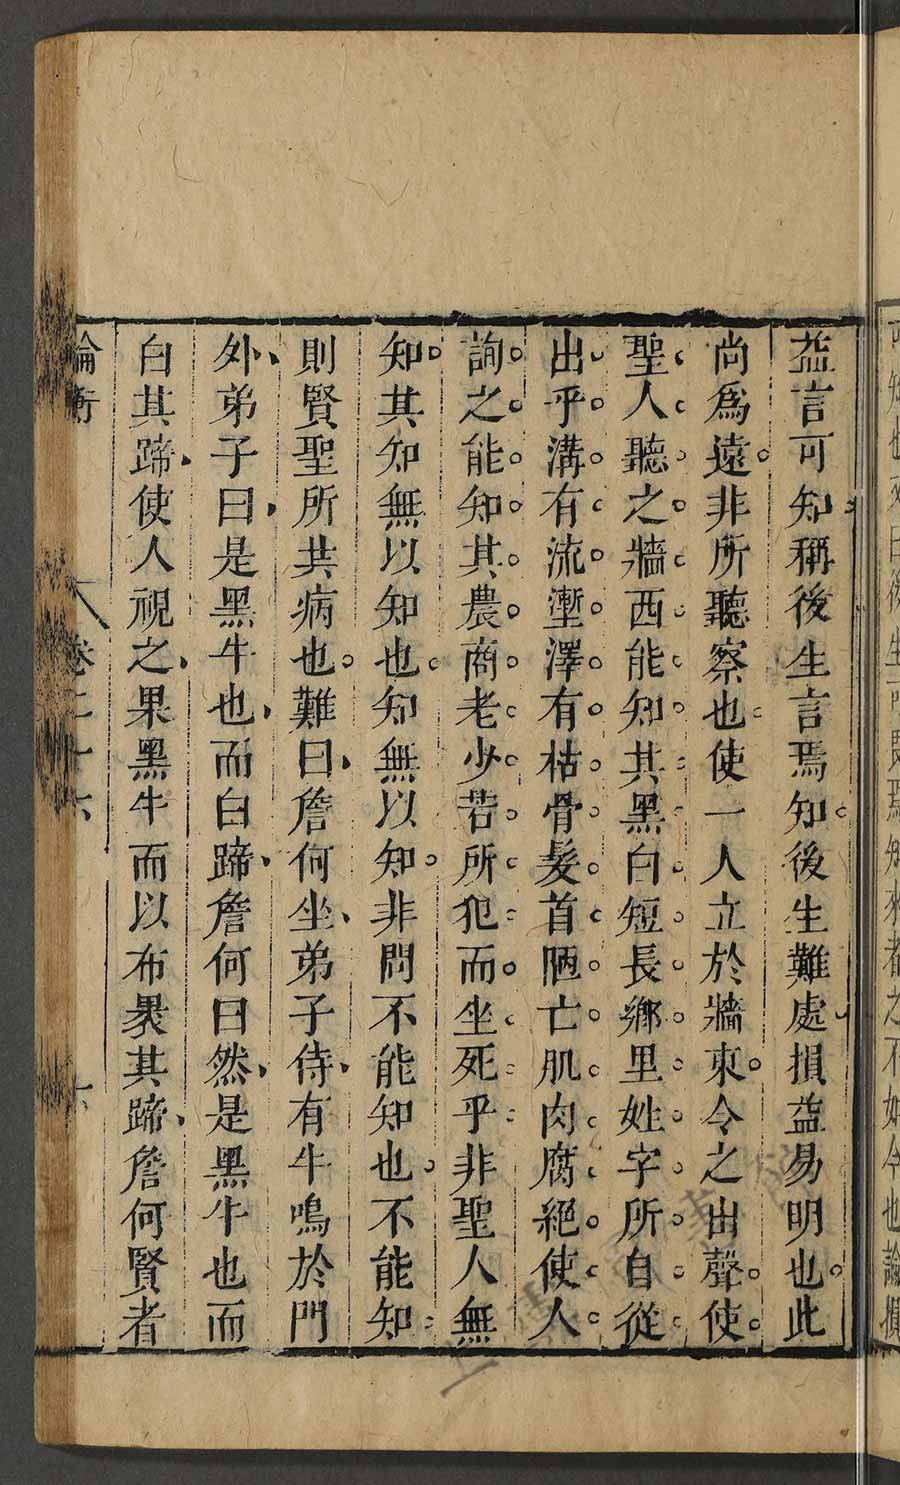 可知也又曰後生可畏焉知來者之不如今也論損
益言可知稱後生言焉知後生難處損益易明也此
尚爲遠非所聽察也使一人立於牆東令之出聲使
聖人聽之牆西能知其黑白短長鄉里姓字所自從
出乎溝有流壍澤有枯骨髮首陋亡肌肉腐絕使人
詢之能知其農商老少若所犯而坐死乎非聖人無
知其知無以知也知無以知非問不能知也不能知
則賢聖所共病也難曰詹何坐弟子侍有牛鳴於門
外弟子曰是黑牛也而白蹄詹何曰然是黑牛也而
白其蹄使人視之果黑牛而以布褁其蹄詹何賢者
論衡 卷二十六